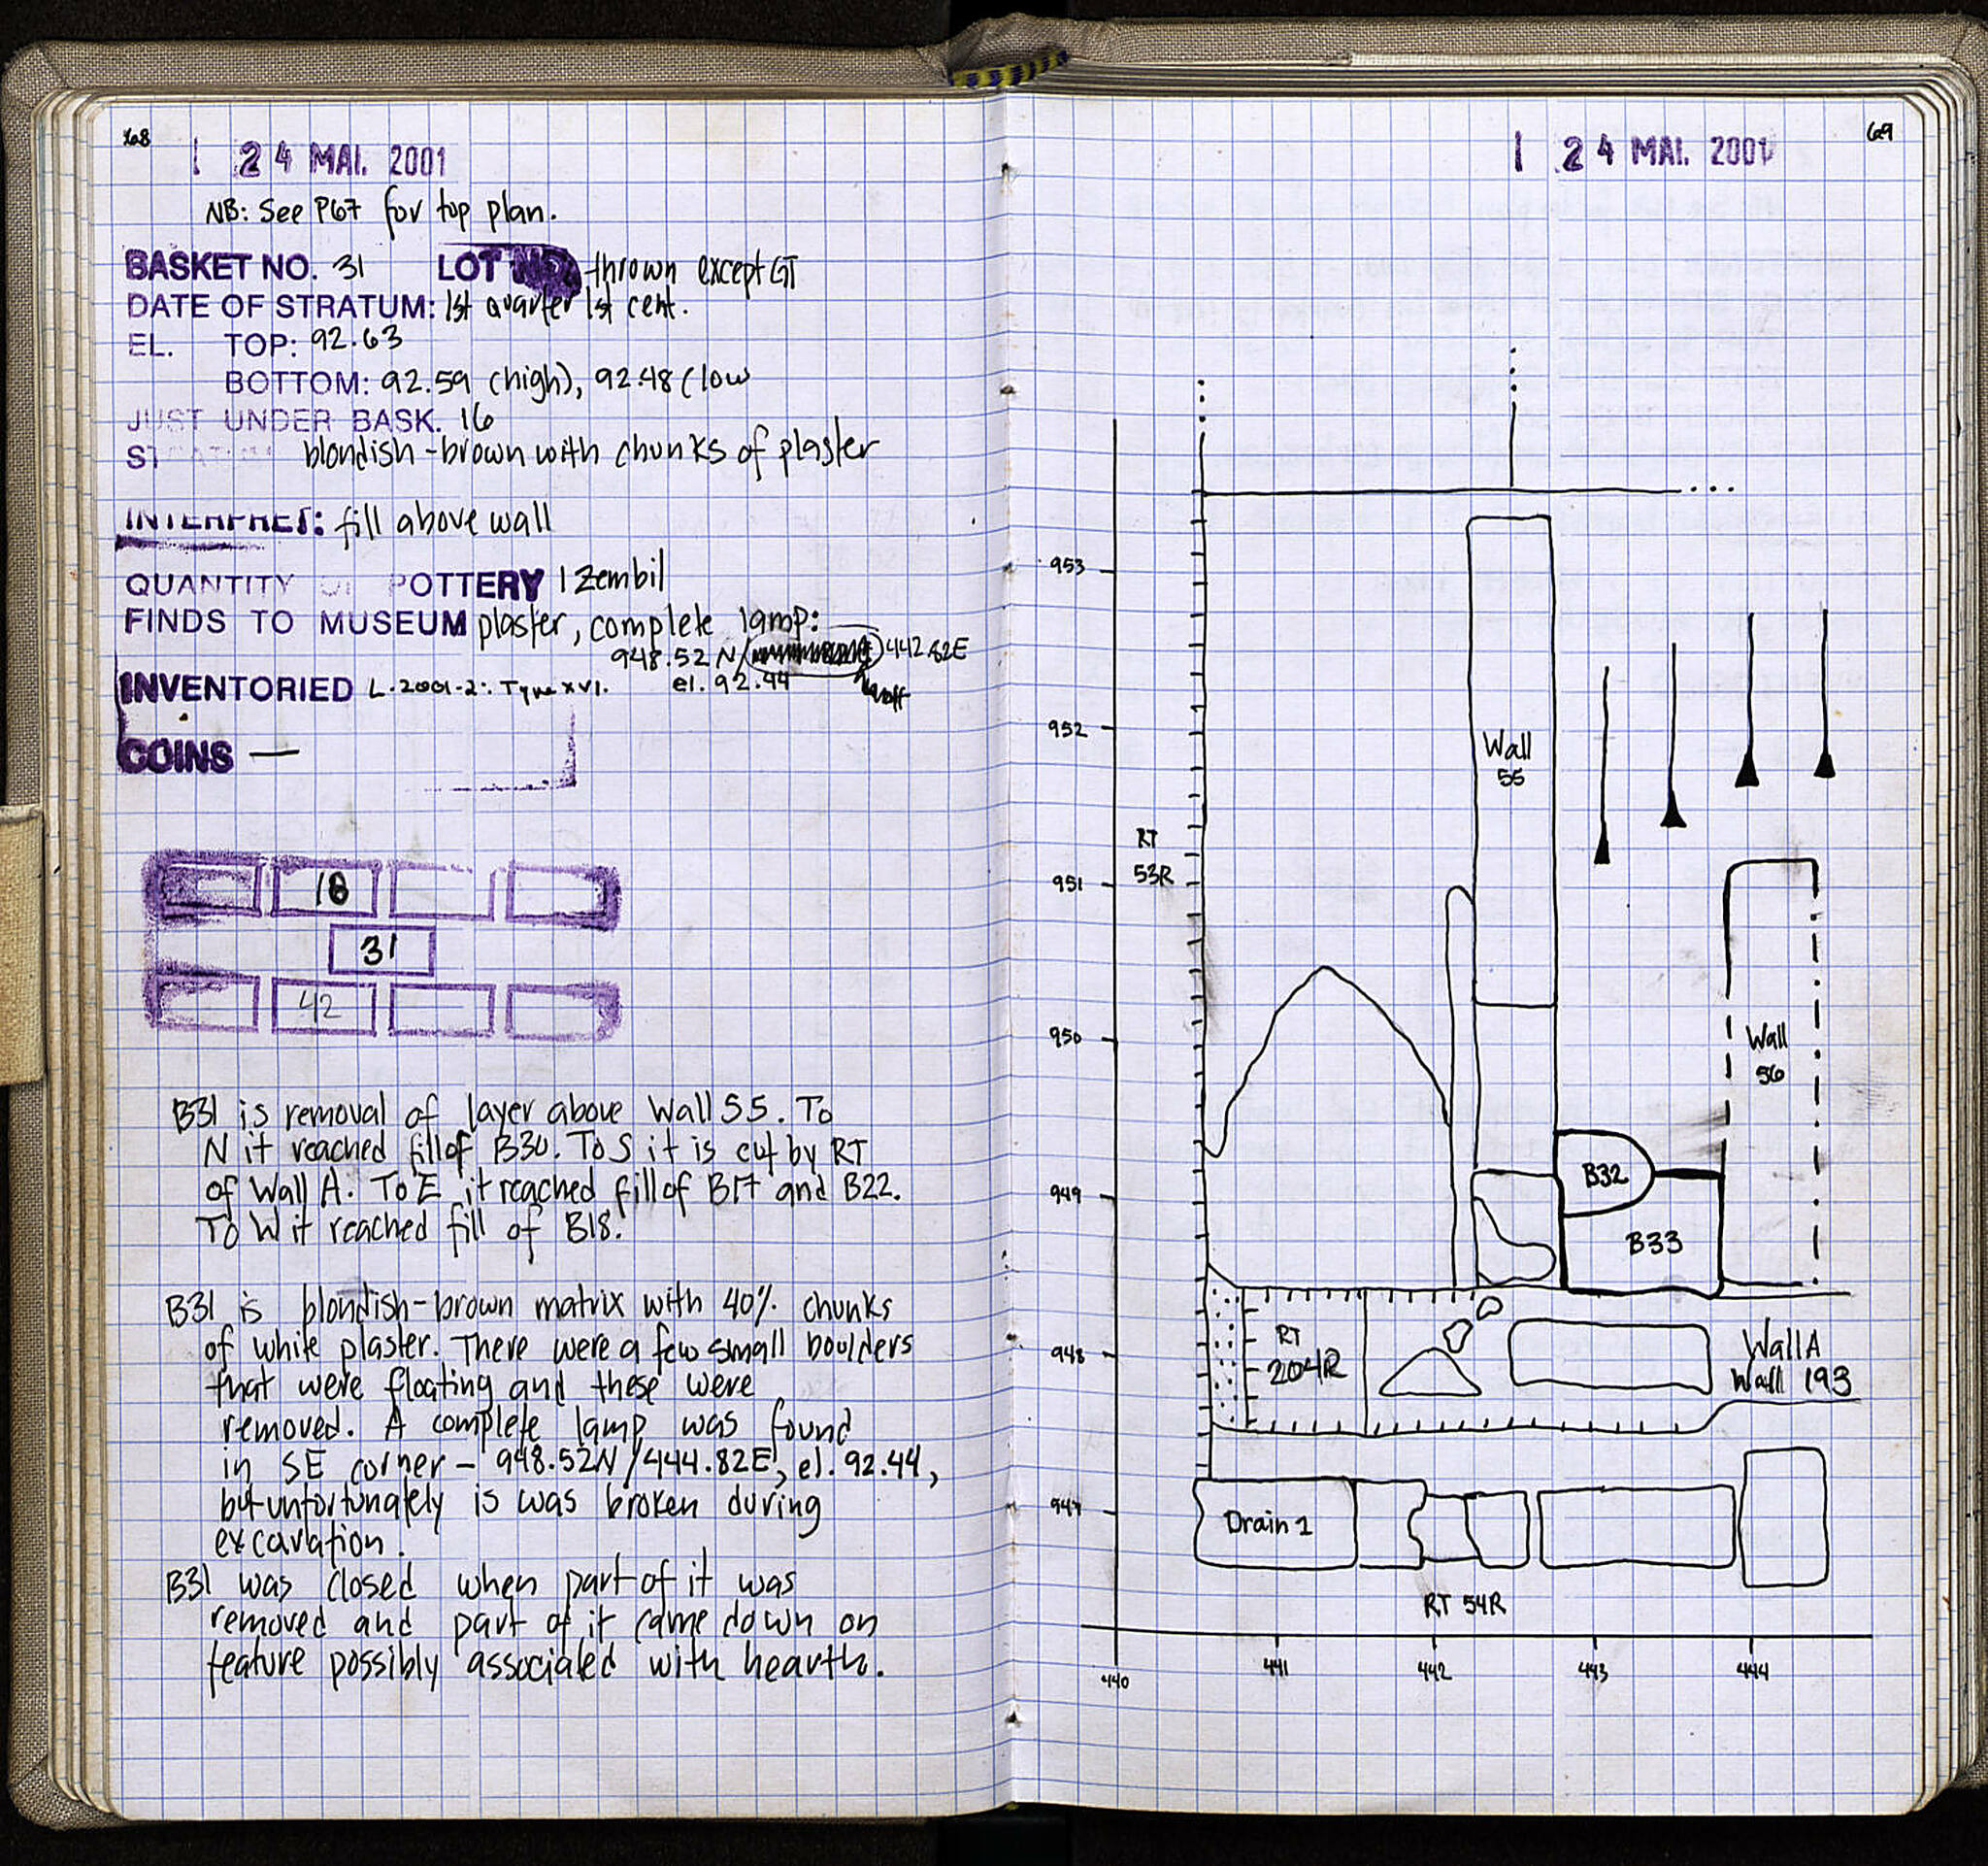 68
24 MAI. 2001
NB: See P67 for top plan.
BASKET NO. 31 LOT NO. thrown except GT
DATE OF STRATUM: 1st quarter 1st cent.
EL. TOP: 92.63
BOTTOM: 92.59 (high), 92.48 (low
JUST UNDER BASK. 16
blondish-brown with chunks of plaster
INTERPRET: fill above wall
QUANTITY OF POTTERY 1 Zembil
FINDS TO MUSEUM plaster, complete lamp:
948.52 N/ 442.82E
el. 92.44
INVENTORIED L.2001-2: Type XVI.
COINS —
18
31
42
B31 is removal of layer above Wall 55. To
N it reached fill of B30. To S it is cut by RT
of Wall A. To E it reached fill of B17 and B22.
To W it reached fill of B18.
B31 is blondish-brown matrix with 40% chunks
of white plaster. There were a few small boulders
that were floating and these were
removed. A complete lamp was found
in SE corner - 948.52N/444.82E, el. 92.44,
but unfortunately is was broken during
excavation.
B31 was closed when part of it was
removed and part of it came down on
feature possibly associated with hearth.
69
24 MAI. 2001
953
952
951
950
949
948
947
RT
53R
Wall
55
Wall
56
B32
B33
RT
204R
Wall A
Wall 193
Drain 1
RT 54R
440
441
442
443
444